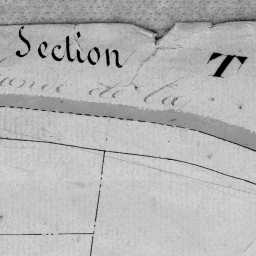 Section T
de la